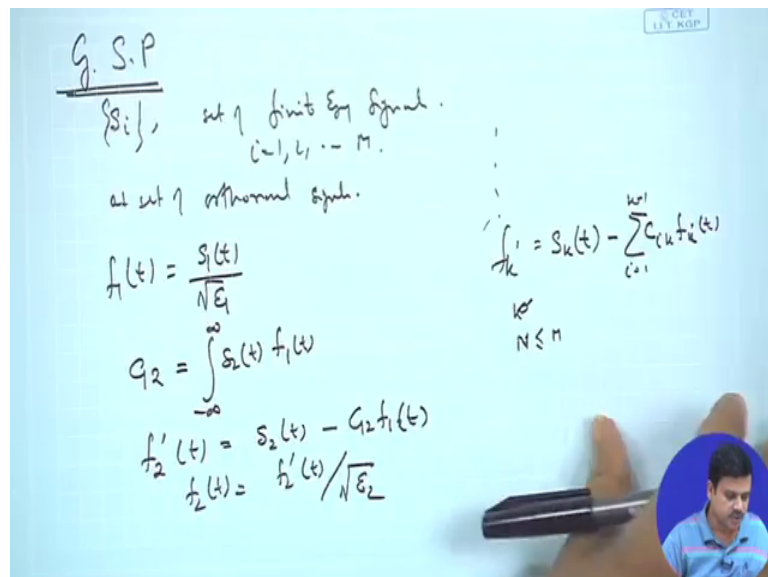 © CET
I.I.T. KGP
G. S. P
{Si}, set of finit Egy Signal.
i=1, 2, ... M.
at set of orthormal signls.
f₁(t) = S₁(t) / √ε₁
C₁₂ = ∫_{-∞}^{∞} S₂(t) f₁(t)
f₂'(t) = S₂(t) - C₁₂ f₁(t)
f₂(t) = f₂'(t) / √ε₂
f'ₖ = Sₖ(t) - ∑_{i=1}^{k-1} C_{ik} f_i(t)
N ≤ M